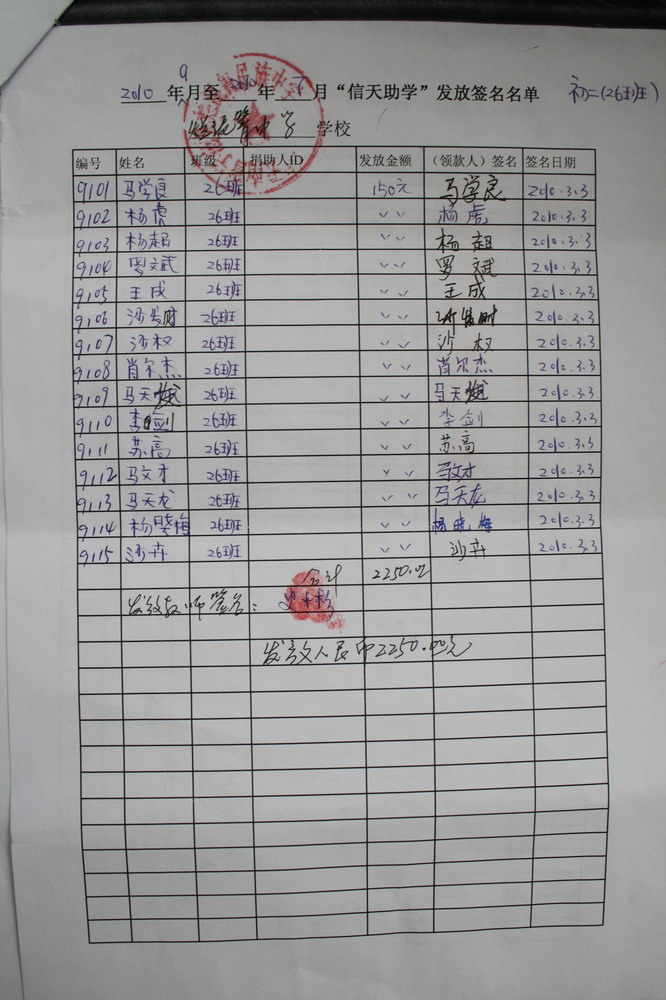 2010年9月至2010年 月“信天助学”发放签名名单 初二(26班)
中学 学校
编号 姓名 班级 捐助人ID 发放金额 (领款人)签名 签名日期
9101 马学良 26班 150元 马学良 2010.3.3
9102 杨虎 26班 〃 杨虎 2010.3.3
9103 杨超 26班 〃 杨超 2010.3.3
9104 罗文斌 26班 〃 罗斌 2010.3.3
9105 王成 26班 〃 王成 2010.3.3
9106 沙发财 26班 〃 2010.3.3
9107 沙权 26班 〃 沙权 2010.3.3
9108 肖尔杰 26班 〃 肖尔杰 2010.3.3
9109 马天 26班 〃 马天 2010.3.3
9110 李剑 26班 〃 李剑 2010.3.3
9111 苏高 26班 〃 苏高 2010.3.3
9112 马文才 26班 〃 马文才 2010.3.3
9113 马天龙 26班 〃 马天龙 2010.3.3
9114 杨晓梅 26班 〃 杨晓梅 2010.3.3
9115 沙卉 26班 〃 沙卉 2010.3.3
合计 2250.00
发放教师签名:
发放人民币2250.00元